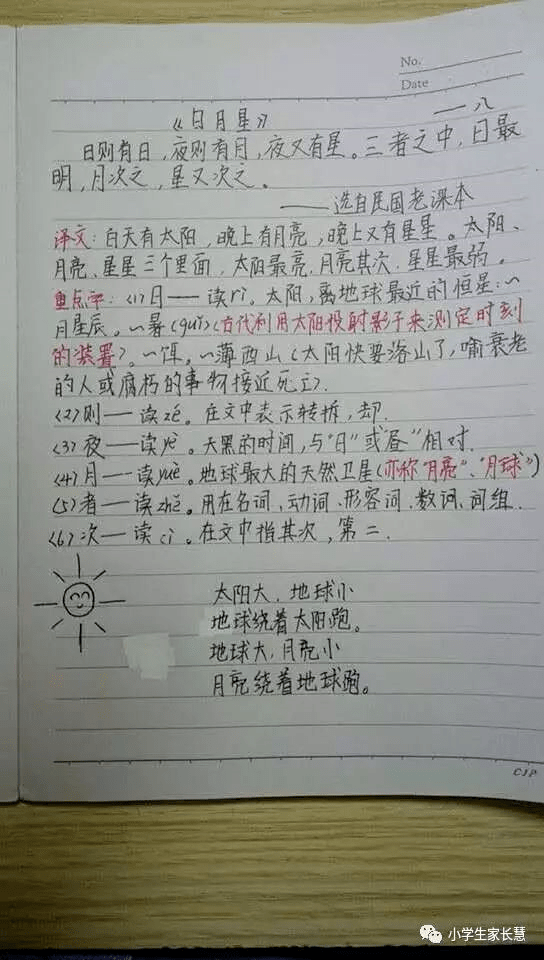 No.
Date
一八
《日月星》
日则有日,夜则有月,夜又有星。三者之中,日最
明,月次之,星又次之。
——选自民国老课本
译文:白天有太阳,晚上有月亮,晚上又有星星。太阳、
月亮、星星三个里面,太阳最亮,月亮其次,星星最弱。
重点字:(1)日——读rì。太阳,离地球最近的恒星:~
月星辰。~晷(guǐ)(古代利用太阳投射影子来测定时刻
的装置)。~饵。~薄西山(太阳快要落山了,喻衰老
的人或腐朽的事物接近死亡).
(2)则——读zé。在文中表示转折,却.
(3)夜——读yè。天黑的时间,与“日”或“昼”相对.
(4)月——读yuè。地球最大的天然卫星(亦称“月亮”、“月球”)
(5)者——读zhě。用在名词、动词、形容词、数词、词组.
(6)次——读cì。在文中指其次,第二.
太阳大,地球小
地球绕着太阳跑。
地球大,月亮小
月亮绕着地球跑。
CJP
小学生家长慧